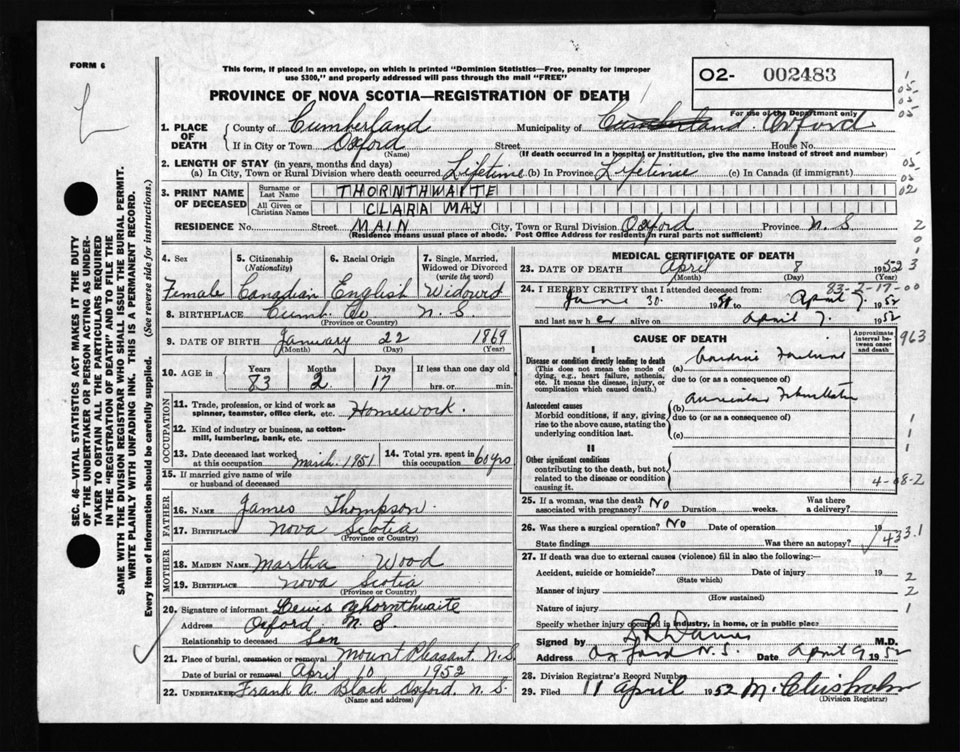 FORM 6
This form, if placed in an envelope, on which is printed "Dominion Statistics—Free, penalty for improper
use $300," and properly addressed will pass through the mail "FREE"
O2- 002483
For use of the Department only
PROVINCE OF NOVA SCOTIA—REGISTRATION OF DEATH
1. PLACE OF DEATH County of Cumberland Municipality of Cumberland. Oxford
If in City or Town Oxford Street House No.
(Name) (If death occurred in a hospital or institution, give the name instead of street and number)
2. LENGTH OF STAY (in years, months and days)
(a) In City, Town or Rural Division where death occurred Lifetime (b) In Province Lifetime (c) In Canada (if immigrant)
3. PRINT NAME OF DECEASED Surname or Last Name THORNTHWAITE
All Given or Christian Names CLARA MAY
RESIDENCE No. Street MAIN City, Town or Rural Division Oxford Province N.S.
(Residence means usual place of abode. Post Office Address for residents in rural parts not sufficient)
4. Sex Female
5. Citizenship (Nationality) Canadian
6. Racial Origin English
7. Single, Married, Widowed or Divorced (write the word) Widowed
8. BIRTHPLACE Cumb. Co N.S.
(Province or Country)
9. DATE OF BIRTH January 22 1869
(Month) (Day) (Year)
10. AGE in Years 83 Months 2 Days 17 If less than one day old
hrs. or min.
OCCUPATION
11. Trade, profession, or kind of work as
spinner, teamster, office clerk, etc. Homework.
12. Kind of industry or business, as cotton-
mill, lumbering, bank, etc.
13. Date deceased last worked at this occupation march 1951
14. Total yrs. spent in this occupation 60 yrs
15. If married give name of wife
or husband of deceased
FATHER
16. Name James Thompson
17. Birthplace Nova Scotia
(Province or Country)
MOTHER
18. MAIDEN NAME Martha Wood
19. BIRTHPLACE Nova Scotia
(Province or Country)
20. Signature of informant Lewis Thornthwaite
Address Oxford N.S.
Relationship to deceased Son
21. Place of burial, cremation or removal Mount Pleasant N.S.
Date of burial or removal April 10 1952
22. UNDERTAKER Frank A. Black Oxford. N.S.
(Name and address)
MEDICAL CERTIFICATE OF DEATH
23. DATE OF DEATH April 8 1952
(Month) (Day) (Year)
83-2-17-00
24. I HEREBY CERTIFY that I attended deceased from:
June 30. 1951 to April 7. 1952
and last saw her alive on April 7. 1952
CAUSE OF DEATH
Approximate interval between onset and death
I
Disease or condition directly leading to death
(This does not mean the mode of
dying, e.g., heart failure, asthenia,
etc. It means the disease, injury, or
complication which caused death.)
(a)
due to (or as a consequence of)
Antecedent causes
Morbid conditions, if any, giving
rise to the above cause, stating the
underlying condition last.
(b) Auricular Fibrillation
due to (or as a consequence of)
(c)
II
Other significant conditions
contributing to the death, but not
related to the disease or condition
causing it.
4-08-2
25. If a woman, was the death associated with pregnancy? No Duration weeks. Was there a delivery?
26. Was there a surgical operation? No Date of operation 19
State findings Was there an autopsy?
433.1
27. If death was due to external causes (violence) fill in also the following:—
Accident, suicide or homicide? Date of injury 19
(State which)
Manner of injury
(How sustained)
Nature of injury
Specify whether injury occurred in industry, in home, or in public place
Signed by M.D.
Address Oxford N.S. Date April 9 1952
28. Division Registrar's Record Number
29. Filed 11 April 1952 M. Chisholm
(Division Registrar)
963
SEC. 46—VITAL STATISTICS ACT MAKES IT THE DUTY
OF THE UNDERTAKER OR PERSON ACTING AS UNDER-
TAKER TO OBTAIN ALL THE PARTICULARS REQUIRED
IN THE "REGISTRATION OF DEATH" AND TO FILE THE
SAME WITH THE DIVISION REGISTRAR WHO SHALL ISSUE THE BURIAL PERMIT.
WRITE PLAINLY WITH UNFADING INK. THIS IS A PERMANENT RECORD.
Every item of information should be carefully supplied. (See reverse side for instructions.)